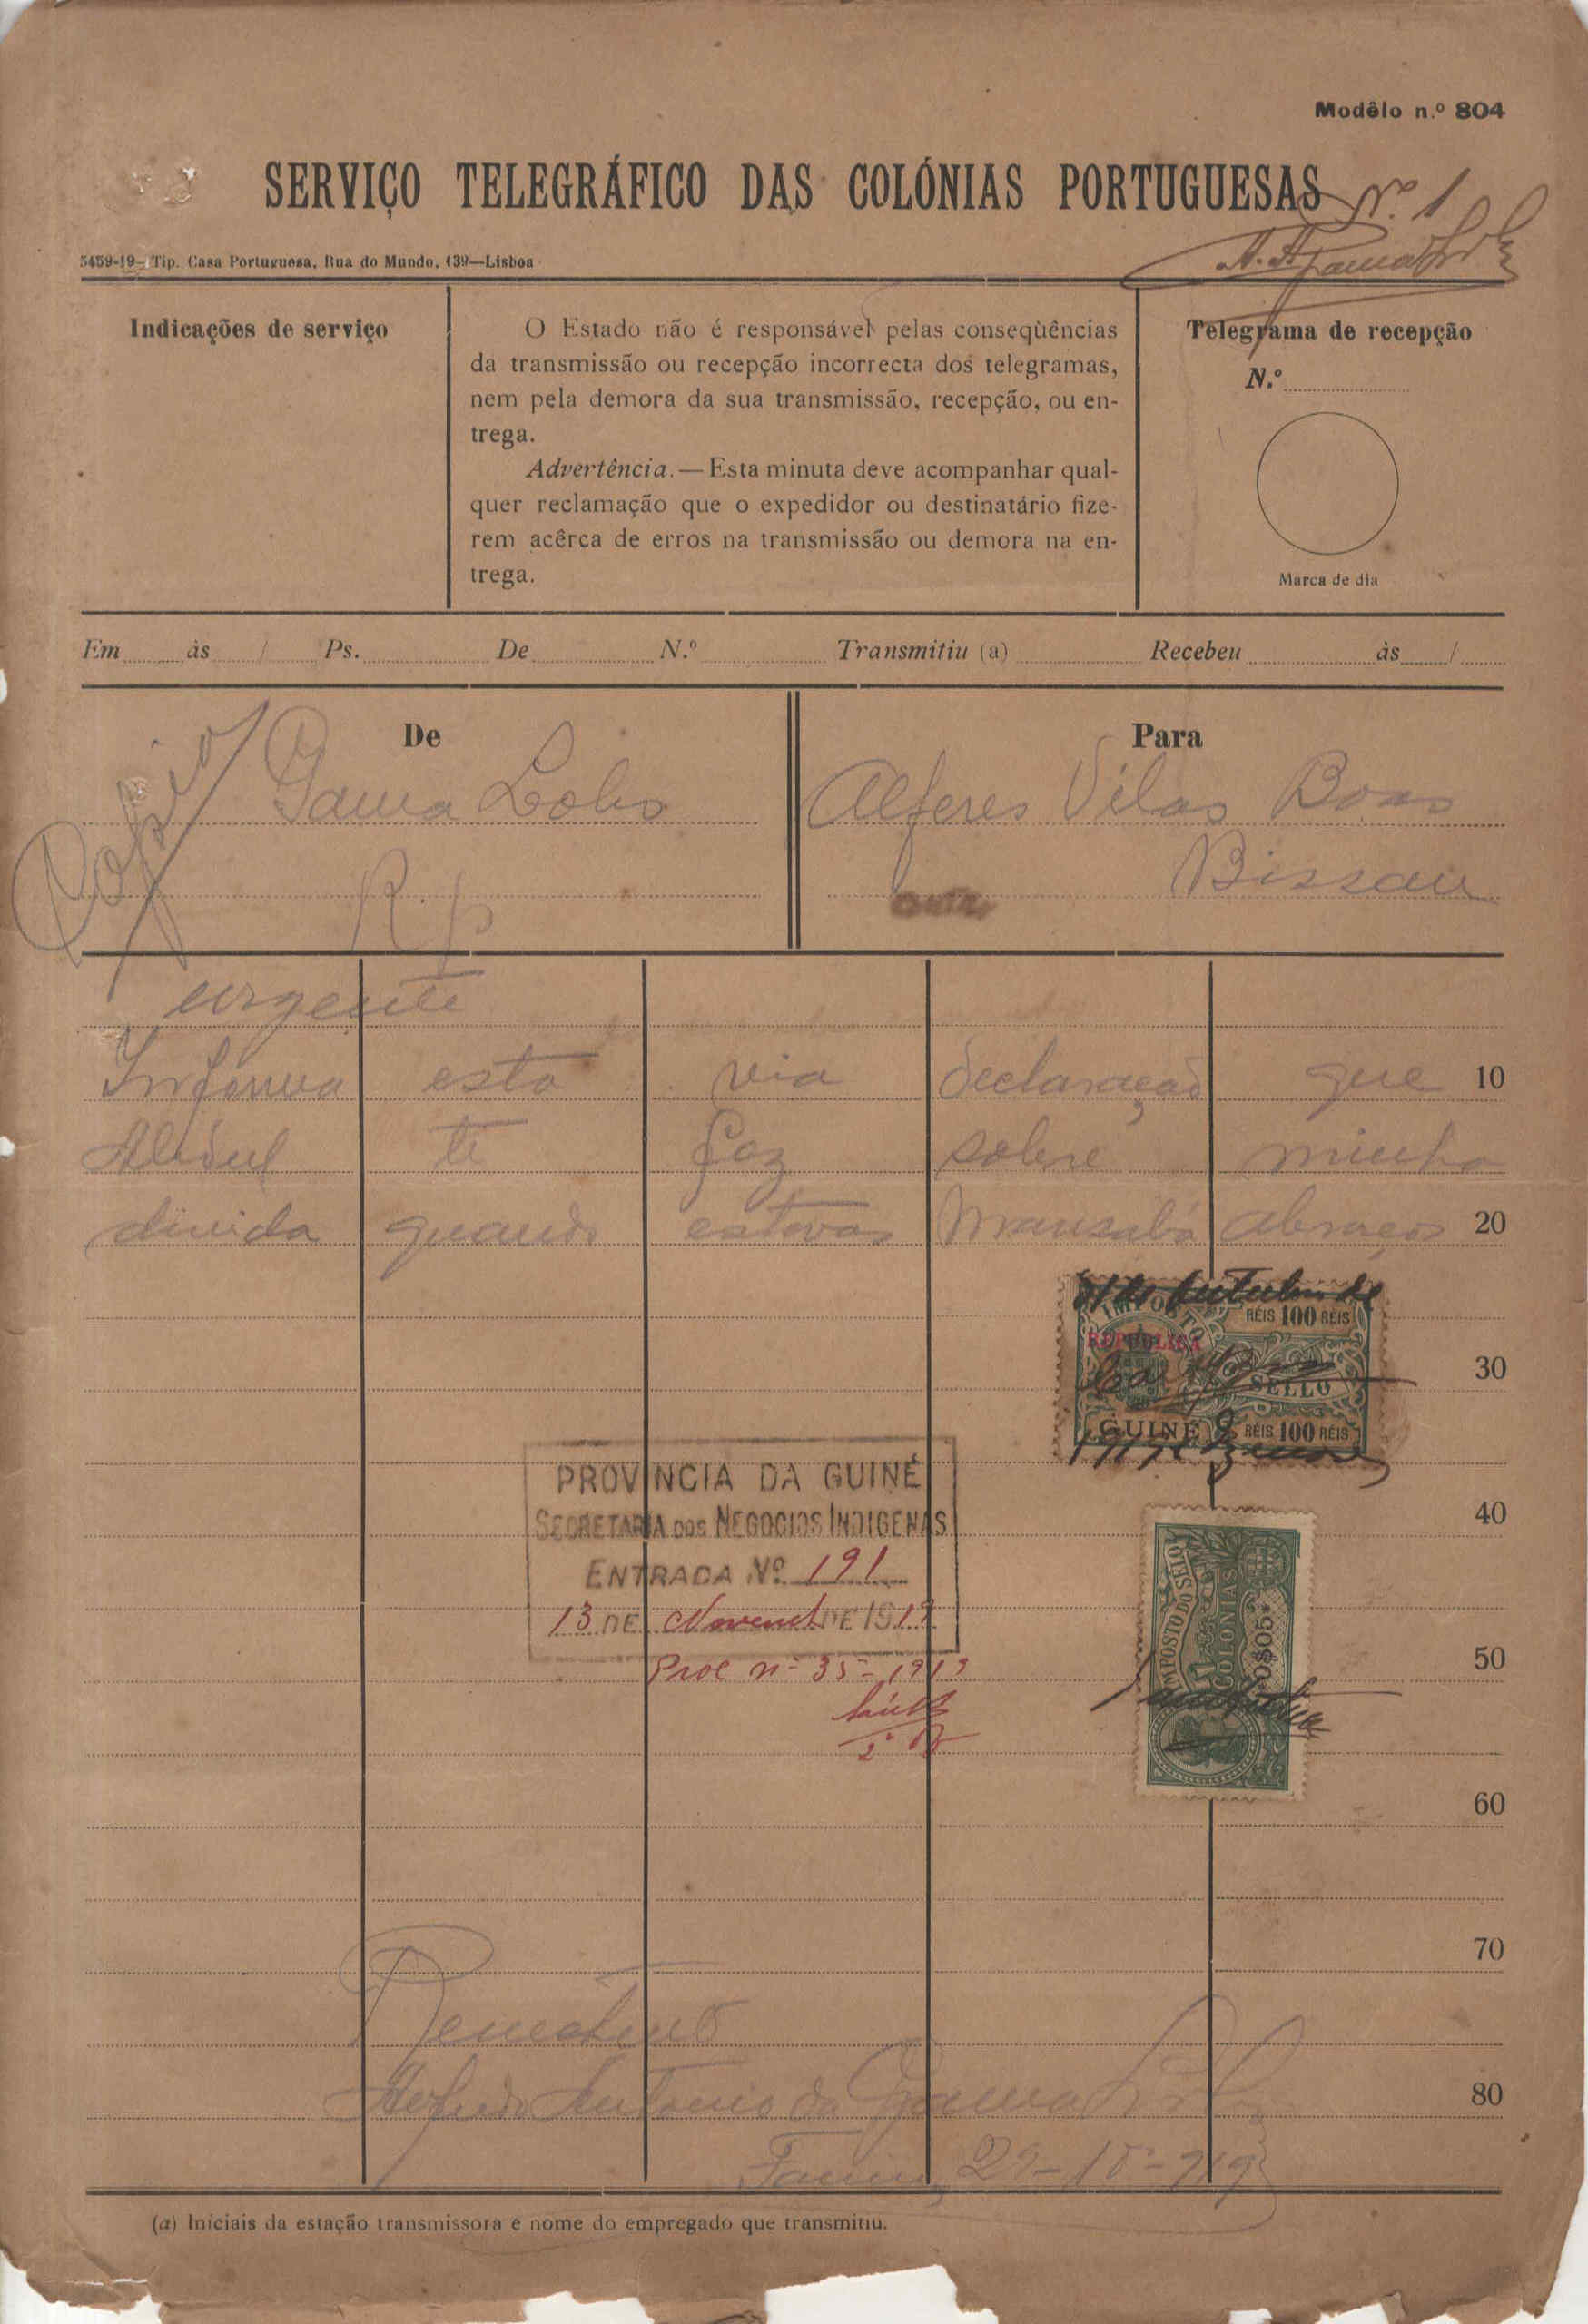 Modêlo n.º 804
SERVIÇO TELEGRÁFICO DAS COLÓNIAS PORTUGUESAS
Nº 1
A. A. Gama Lobo
5459-19- Tip. Casa Portuguesa, Rua do Mundo, 139—Lisboa
Indicações de serviço
O Estado não é responsável pelas conseqùências
da transmissão ou recepção incorrecta dos telegramas,
nem pela demora da sua transmissão, recepção, ou en-
trega.
Advertência.—Esta minuta deve acompanhar qual-
quer reclamação que o expedidor ou destinatário fize-
rem acêrca de erros na transmissão ou demora na en-
trega.
Telegrama de recepção
N.º
Marca de dia
Em às / Ps. De N.º Transmitiu (a) Recebeu às /
De
Copia
Gama Lobo
R. p
Para
Alferes Vilas Boas
Bissau
urgente
Informa esta via declaração que 10
Abdul te fez sobre minha
divida quando estavas Mansabá abraços 20
30
40
50
60
70
80
31 de Outubro de
IMPOSTO
RÉIS 100 RÉIS
REPUBLICA
SELLO
GUINÉ RÉIS 100 RÉIS
PROVINCIA DA GUINÉ
SECRETARIA DOS NEGOCIOS INDIGENAS
ENTRADA Nº 191
13 DE Novemb DE 1919
Proc nº 35-1919
IMPOSTO DO SELO
COLONIAS
0$05
Remetente
Alfredo Antonio da Gama Lobo
Farim, 29-10-919
(a) Iniciais da estação transmissora e nome do empregado que transmitiu.